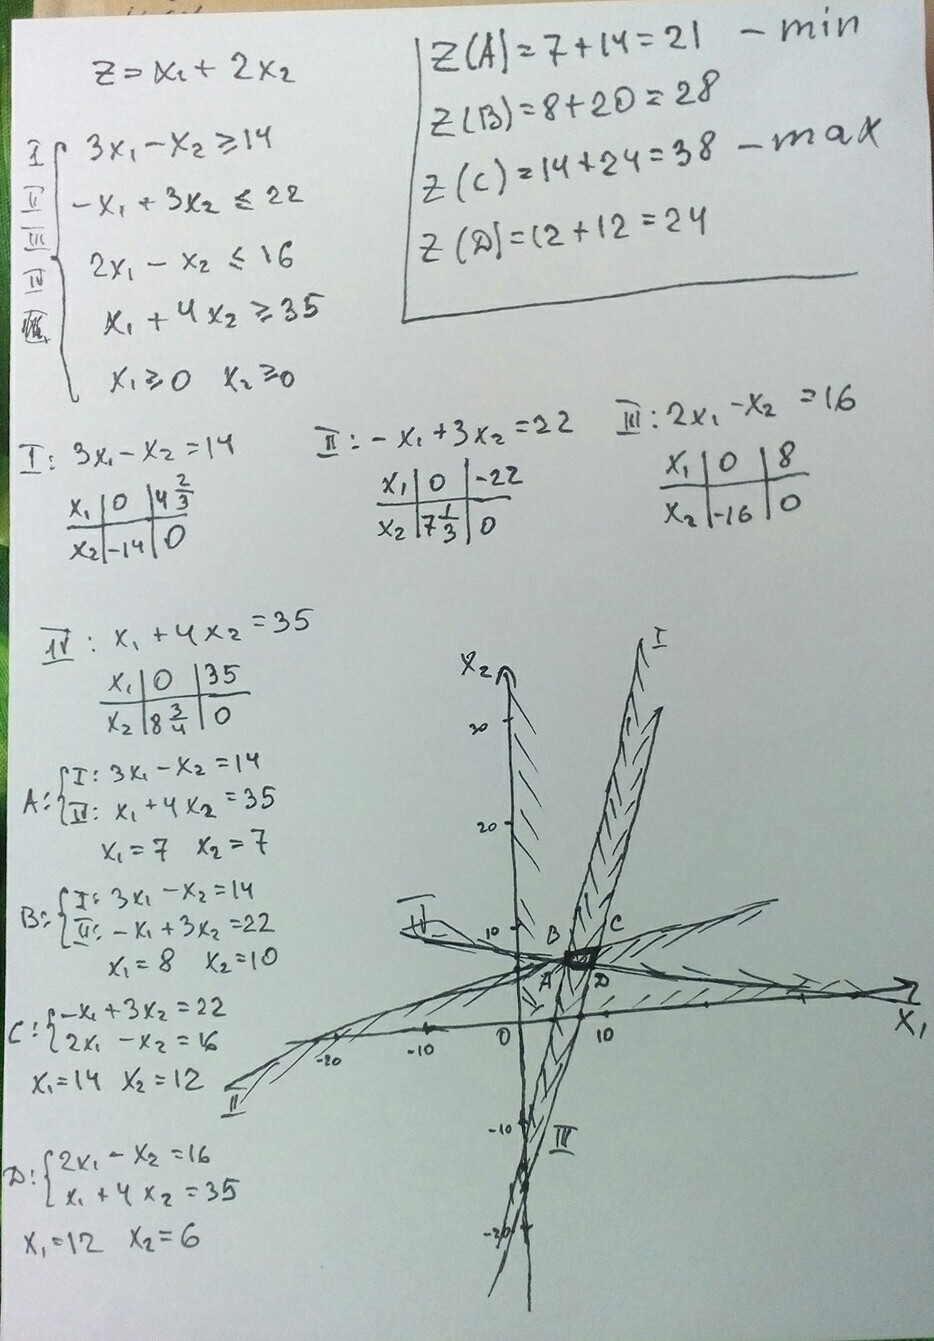 Z = x₁ + 2x₂
I 3x₁ - x₂ ≥ 14
II -x₁ + 3x₂ ≤ 22
III 2x₁ - x₂ ≤ 16
IV x₁ + 4x₂ ≥ 35
x₁ ≥ 0 x₂ ≥ 0
Z(A) = 7 + 14 = 21 - min
Z(B) = 8 + 20 = 28
Z(C) = 14 + 24 = 38 - max
Z(D) = 12 + 12 = 24
I: 3x₁ - x₂ = 14
x₁ | 0 | 4 2/3
x₂ | -14 | 0
II: -x₁ + 3x₂ = 22
x₁ | 0 | -22
x₂ | 7 1/3 | 0
III: 2x₁ - x₂ = 16
x₁ | 0 | 8
x₂ | -16 | 0
IV: x₁ + 4x₂ = 35
x₁ | 0 | 35
x₂ | 8 3/4 | 0
A: { I: 3x₁ - x₂ = 14
IV: x₁ + 4x₂ = 35
x₁ = 7 x₂ = 7
B: { I: 3x₁ - x₂ = 14
II: -x₁ + 3x₂ = 22
x₁ = 8 x₂ = 10
C: { -x₁ + 3x₂ = 22
2x₁ - x₂ = 16
x₁ = 14 x₂ = 12
D: { 2x₁ - x₂ = 16
x₁ + 4x₂ = 35
x₁ = 12 x₂ = 6
I
x₂
30
20
IV
10 B C
A D
-20 -10 0 10 x₁
II
-10 III
-20